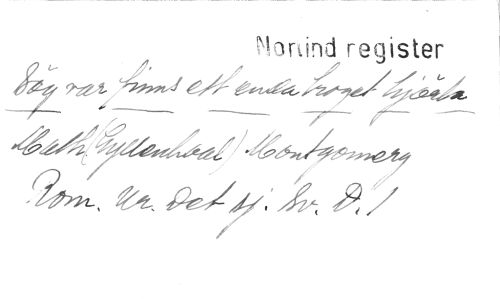 Norlind register
Säg var finns ett enda troget hjärta
Math (Gyllenhaal) Montgomery
Rom. ur. Det sj. Sv. D. 1